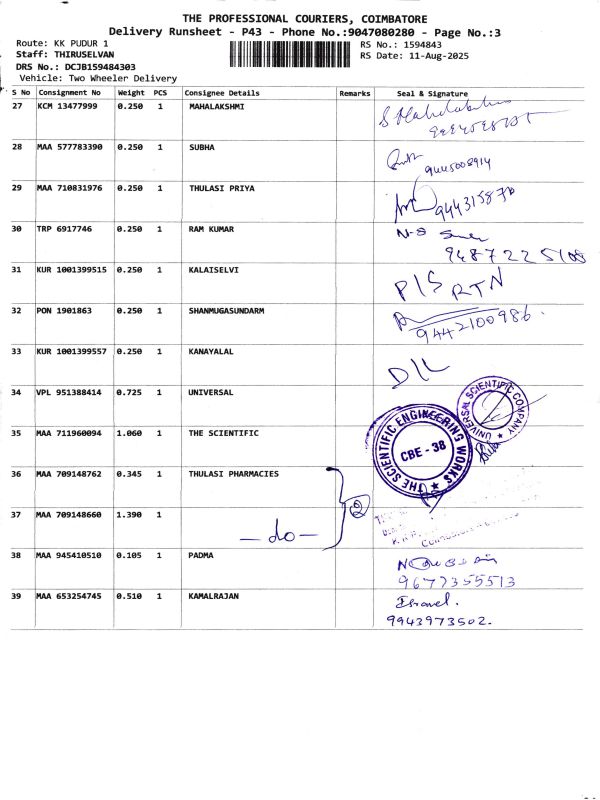 THE PROFESSIONAL COURIERS, COIMBATORE
Delivery Runsheet - P43 - Phone No.:9047080280 - Page No.:3
Route: KK PUDUR 1 RS No.: 1594843
Staff: THIRUSELVAN RS Date: 11-Aug-2025
DRS No.: DCJB159484303
Vehicle: Two Wheeler Delivery
S No Consignment No Weight PCS Consignee Details Remarks Seal & Signature
27 KCM 13477999 0.250 1 MAHALAKSHMI
28 MAA 577783390 0.250 1 SUBHA
9445008914
29 MAA 710831976 0.250 1 THULASI PRIYA
30 TRP 6917746 0.250 1 RAM KUMAR
9487225108
31 KUR 1001399515 0.250 1 KALAISELVI
P/S RTN
32 PON 1901863 0.250 1 SHANMUGASUNDARM
9442100986.
33 KUR 1001399557 0.250 1 KANAYALAL
D/L
34 VPL 951388414 0.725 1 UNIVERSAL
UNIVERSAL SCIENTIFIC COMPANY
35 MAA 711960094 1.060 1 THE SCIENTIFIC
THE SCIENTIFIC ENGINEERING WORKS
CBE - 38
36 MAA 709148762 0.345 1 THULASI PHARMACIES
2
37 MAA 709148660 1.390 1
— do —
38 MAA 945410510 0.105 1 PADMA
9677355513
39 MAA 653254745 0.510 1 KAMALRAJAN
9943973502.